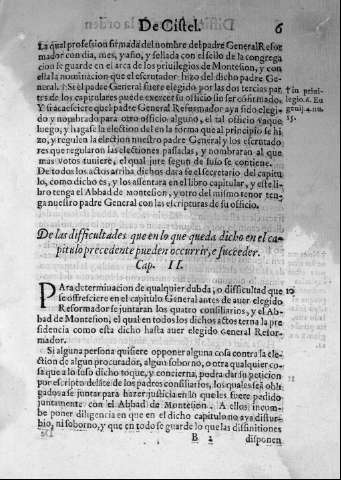 De Cistel.
6
La qual profession firmada del nombre del padre General Refor
mador con dia, mes, y año, y sellada con el sello de la congrega
cion se guarde en el arca de los priuilegios de Montesion, y con
esta la nominacion que el escrutador hizo del dicho padre Ge-
neral. † Si el padre General fuere elegido por las dos tercias par
tes de los capitulares puede exercer su officio sin ser confirmado.
Y si acaesciere que el padre General Reformador aya sido elegi-
do y nombrado para otro officio alguno, el tal officio vaque
luego, y hagase la election del en la forma que al principio se hi
zo, y regulen la election nuestro padre General y los escrutado
res que regularon las electiones passadas, y nombraran al que
mas votos tuuiere, el qual jure segun de suso se contiene.
De todos los actos arriba dichos dara fe el secretario del capitu
lo, como dicho es, y los assentara en el libro capitular, y este li-
bro tenga el Abbad de Montesion, y otro del mismo tenor ten-
ga nuestro padre General con las escripturas de su officio.
† in priui-
legio. 2. Eu
genij. 4. nu.
15.
De las difficultades que en lo que queda dicho en el ca-
pitulo precedente pueden occurrir, e succeder.
Cap. II.
PAra determinacion de qualquier dubda, o difficultad que
se offresciere en el capitulo General antes de auer elegido
Reformador se juntaran los quatro consiliarios, y el Ab-
bad de Montesion, el qual en todos los dichos actos terna la pre
sidencia como esta dicho hasta auer elegido General Refor-
mador.
10
Si alguna persona quisiere opponer alguna cosa contra la ele-
ction de algun procurador, alguno soborno, o otra qualquier co-
sa que a lo suso dicho toque, y concierna, podra dar su peticion
por escripto delãte de los padres consiliarios, los quales seã obli-
gados a se juntar para hazer justicia en lo que les fuere pedido
juntamente con el Abbad de Montesion. A ellos incom-
be poner diligencia en que en el dicho capitulo no aya distur-
bio, ni soborno, y que en todo se guarde lo que las diffinitiones
B 2 disponen